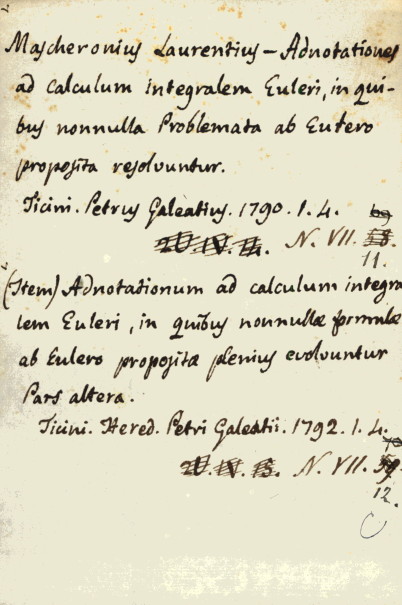 Mascheronius Laurentius – Adnotationes
ad calculum integralem Euleri, in qui-
bus nonnulla Problemata ab Eulero
proposita resolvuntur.
Ticini. Petrus Galeatius. 1790. 1. 4.
N. VII.
11.
(Item) Adnotationum ad calculum integra
lem Euleri, in quibus nonnullæ formulæ
ab Eulero propositæ plenius evolvuntur
Pars altera.
Ticini. Hered. Petri Galeatii. 1792. 1. 4.
N. VII.
12.